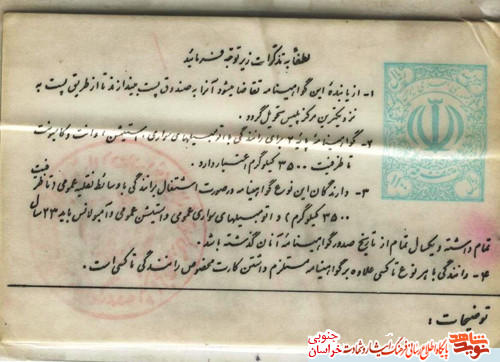 لطفا به تذکرات زیر توجه فرمائید
۱- از یابنده این گواهینامه تقاضا میشود آنرا به صندوق پست بیندازند تا از طریق پست به
نزدیکترین مرکز پلیس تحویل گردد.
۲- گواهینامه پایه ۲ برای رانندگی با اتومبیلهای سواری، استیشن، وانت و کامیونت
تا ظرفیت ۳۵۰۰ کیلوگرم اعتبار دارد.
۳- دارندگان این نوع گواهینامه در صورت اشتغال برانندگی با وسائط نقلیه عمومی (تا ظرفیت
۳۵۰۰ کیلوگرم) و اتومبیلهای سواری عمومی و استیشن عمومی و آمبولانس باید ۲۳ سال
تمام داشته و یکسال تمام از تاریخ صدور گواهینامه آنان گذشته باشد.
۴- رانندگی با هر نوع تاکسی علاوه بر گواهینامه مستلزم داشتن کارت مخصوص رانندگی تاکسی است.
توضیحات:
نوید شاهد
پایگاه اطلاع رسانی فرهنگ ایثار و شهادت
خراسان جنوبی